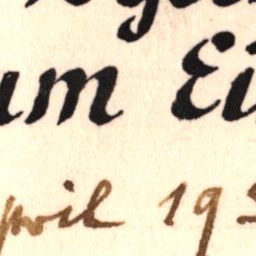 um Ei
pril 19